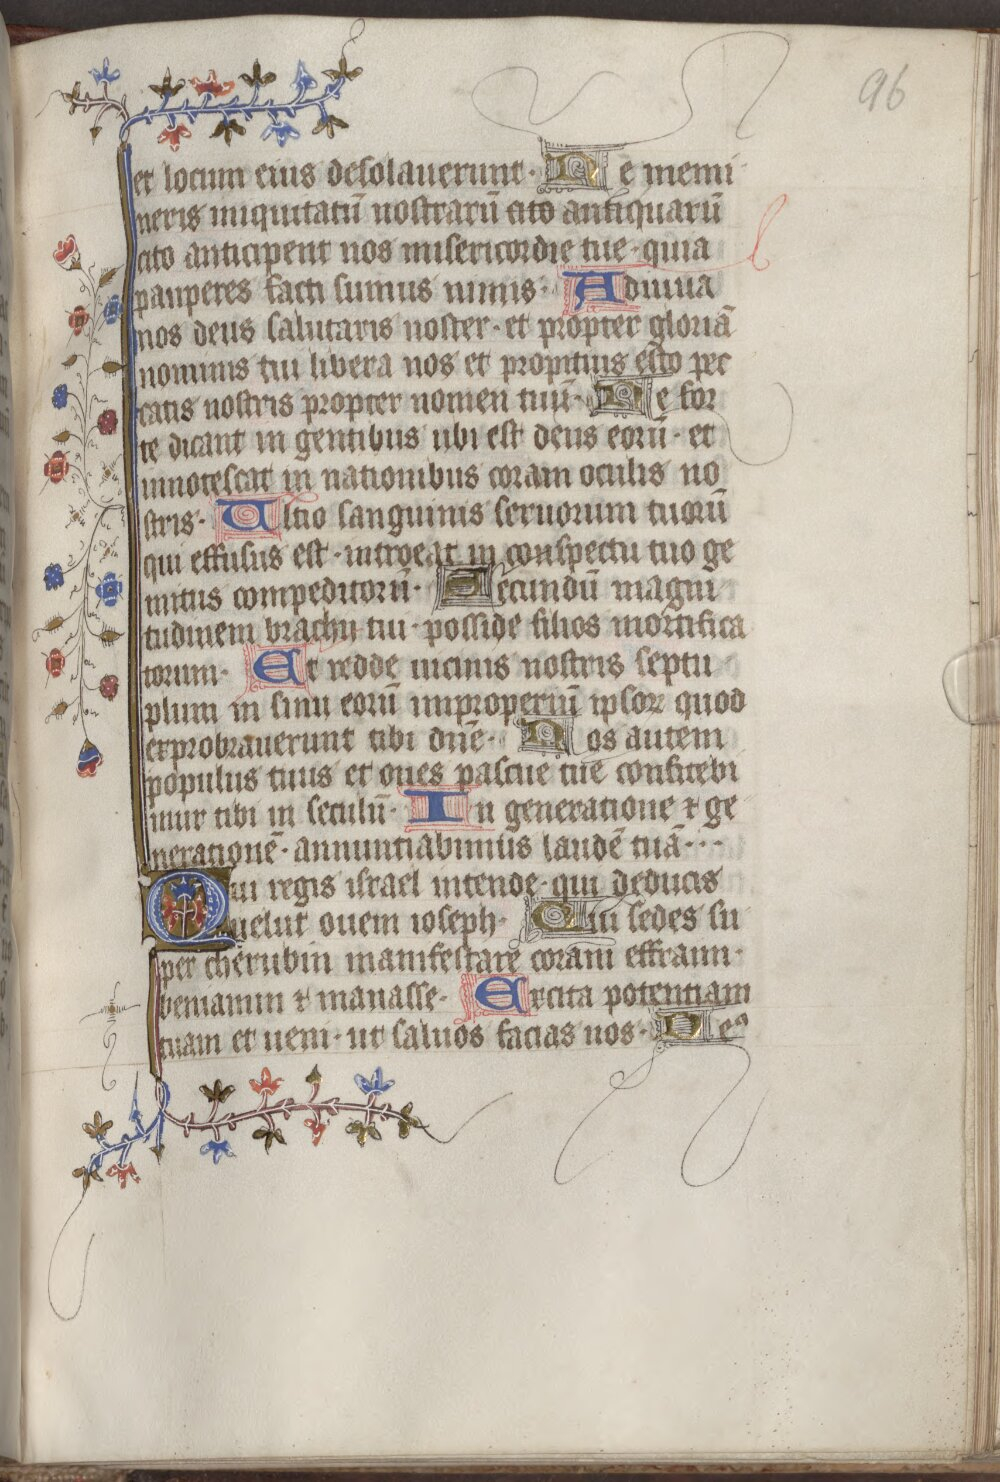 96
et locum eius desolauerunt· Ne memi
neris iniquitatū nostrarū cito antiquarū
cito anticipent nos misericordie tue· quia
pauperes facti sumus nimis· Adiuua
nos deus salutaris noster· et propter gloriā
nominis tui libera nos et propitius esto pec
catis nostris propter nomen tuū· Ne for
te dicant in gentibus ubi est deus eorū· et
innotescat in nationibus coram oculis no
stris· Ultio sanguinis seruorum tuorū
qui effusus est· introeat in conspectu tuo ge
mitus compeditorū· Secundū magni
tudinem brachii tui· posside filios mortifica
torum· Et redde uicinis nostris septu
plum in sinu eorū improperiū ipsoꝝ quod
exprobrauerunt tibi dn̄e· Nos autem
populus tuus et oues pascue tue confitebi
mur tibi in seculū· In generatione ⁊ ge
nerationē· annuntiabimus laudē tuā···
Qui regis israel intende· qui deducis
uelut ouem ioseph· Qui sedes su
per cherubin manifestare coram effraim·
beniamin ⁊ manasse· Excita potentiam
tuam et ueni· ut saluos facias nos· Deꝰ